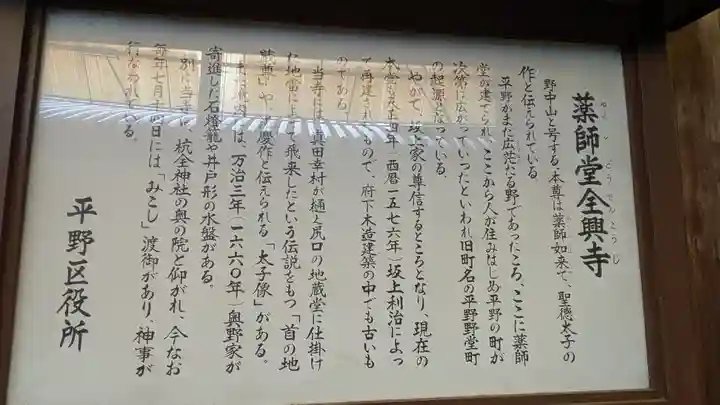 薬師堂全興寺
野中山と号する本尊は薬師如来で、聖徳太子の
作と伝えられている
平野がまだ広茫たる野であったころ、ここに薬師
堂が建てられ、ここから人が住みはじめ平野の町が
次第に広がっていったといわれ旧町名の平野野堂町
の起源となっている。
やがて、坂上家の尊信するところとなり、現在の
本堂は天正四年(西暦一五七六年)坂上利治によっ
て再建されたもので、府下木造建築の中でも古いも
のである。
当寺には、真田幸村が樋之尻口の地蔵堂に仕掛け
た地雷によって飛来したという伝説をもつ「首の地
蔵尊」や、慶作と伝えられる「太子像」がある。
内には、万治三年(一六六〇年)奥野家が
寄進した石燈籠や井戸形の水盤がある。
別に当寺は、杭全神社の奥の院と仰がれ、今なお
毎年七月十四日には「みこし」渡御があり、神事が
行なわれている。
平野区役所